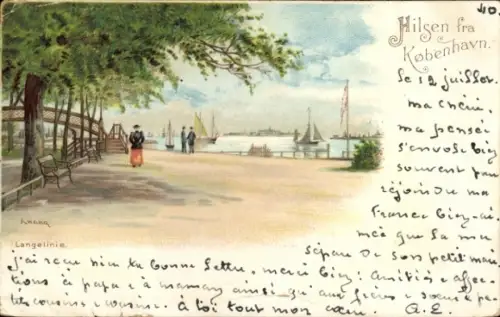 40.
Hilsen fra
København.
le 12 juillet.
ma chérie,
ma pensée
s'envole bien
souvent pour
rejoindre ma
France bien-ai-
mée que la ma
sépare de son petit mari
j'ai reçu hier ta bonne lettre, merci bien; amitiés affec-
tions à papa & à maman ainsi qu'aux frères & sœurs & pe-
tits cousins & cousine. à toi tout mon cœur. A.E.
Langelinie.